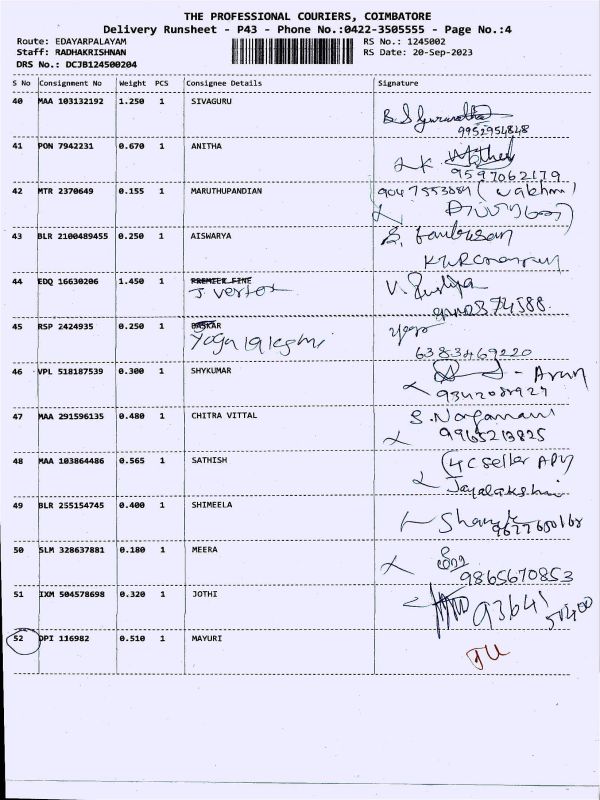 THE PROFESSIONAL COURIERS, COIMBATORE
Delivery Runsheet - P43 - Phone No.:0422-3505555 - Page No.:4
Route: EDAYARPALAYAM RS No.: 1245002
Staff: RADHAKRISHNAN RS Date: 20-Sep-2023
DRS No.: DCJB124500204
S No Consignment No Weight PCS Consignee Details Signature
40 MAA 103132192 1.250 1 SIVAGURU
9952954848
41 PON 7942231 0.670 1 ANITHA
9597062179
42 MTR 2370649 0.155 1 MARUTHUPANDIAN
43 BLR 2100489455 0.250 1 AISWARYA
44 EDQ 16630206 1.450 1 PREMIER FINE
J. Vertex
45 RSP 2424935 0.250 1 BASKAR
Yogalakshmi
6383469220
46 VPL 518187539 0.300 1 SHYKUMAR
- Arun
47 MAA 291596135 0.480 1 CHITRA VITTAL
9965213825
48 MAA 103864486 0.565 1 SATHISH
Jayalakshmi
49 BLR 255154745 0.400 1 SHIMEELA
50 SLM 328637881 0.180 1 MEERA
9865670853
51 IXM 504578698 0.320 1 JOTHI
52 DPI 116982 0.510 1 MAYURI